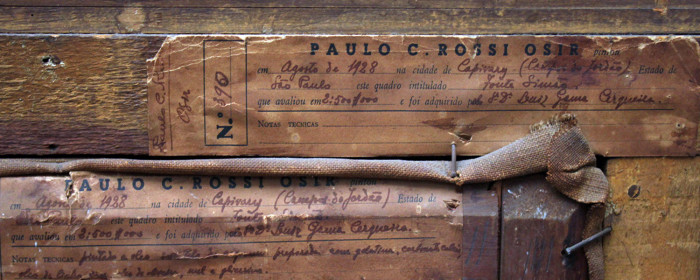 PAULO C. ROSSI OSIR pintou
em Agosto de 1928 na cidade de Capivary (Campos do Jordão) Estado de
São Paulo este quadro intitulado Fonte Simão
que avaliou em 2:500$000 e foi adquirido pelo Snr. Luiz Gama Cerqueira
N.º 390
NOTAS TECNICAS
PAULO C. ROSSI OSIR pintou
em Agosto de 1928 na cidade de Capivary (Campos do Jordão) Estado de
São Paulo este quadro intitulado Fonte Simão
que avaliou em 2:500$000 e foi adquirido pelo Luiz Gama Cerqueira
NOTAS TECNICAS pintado a oleo preparada com gelatina,
oleo de